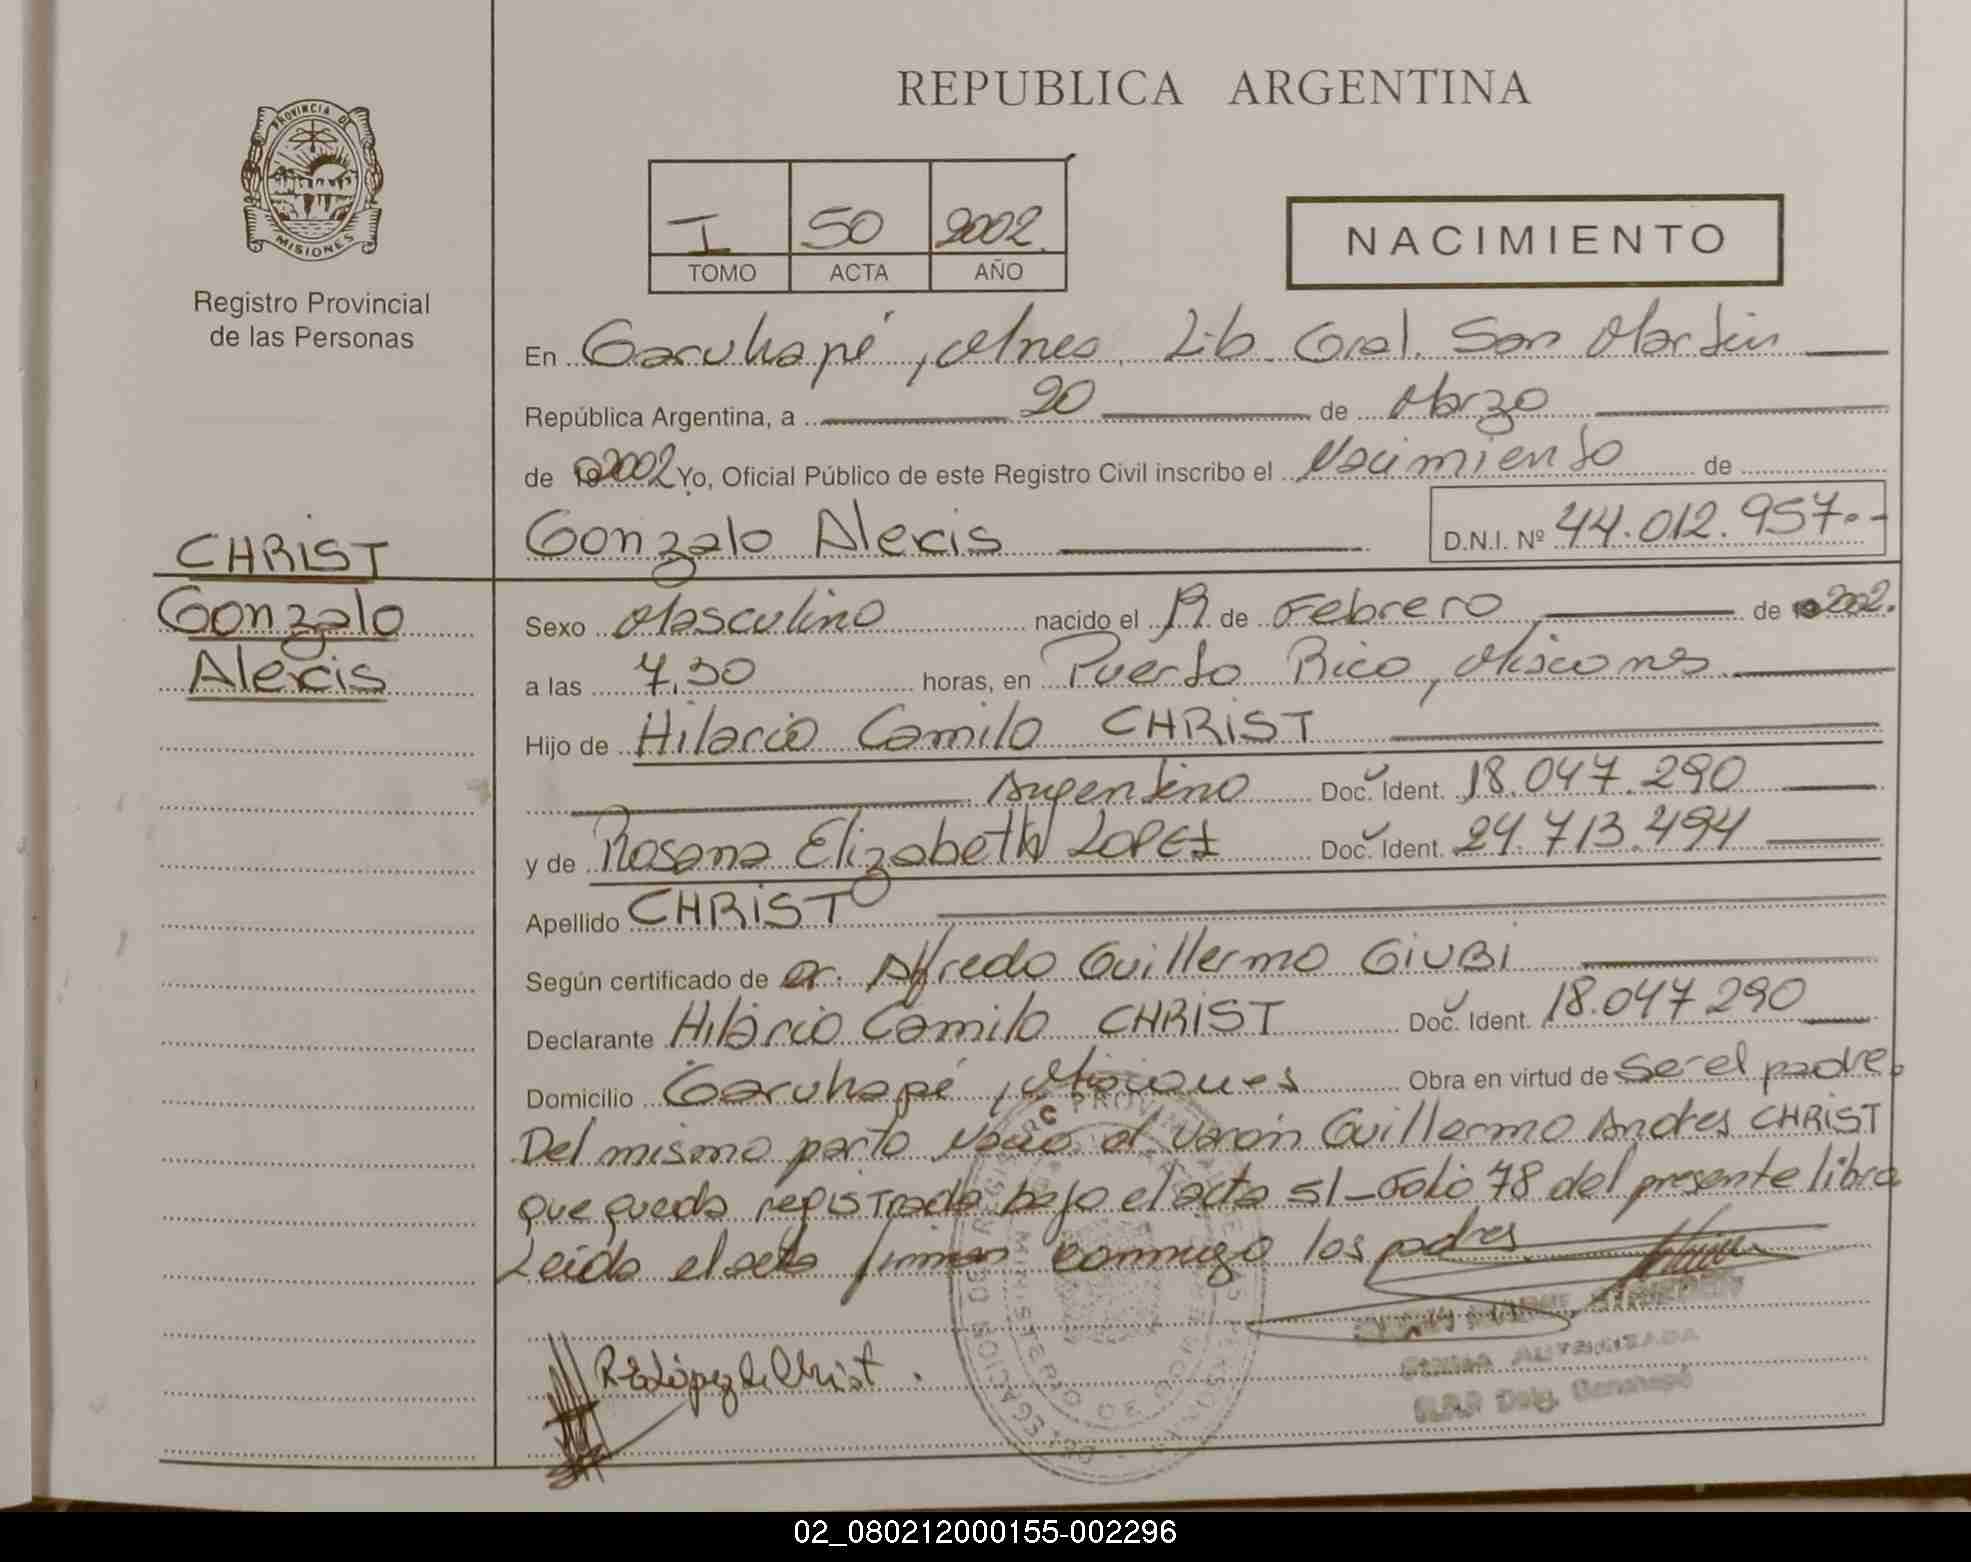 REPUBLICA ARGENTINA
PROVINCIA DE
MISIONES
Registro Provincial
de las Personas
I 50 2002
TOMO ACTA AÑO
NACIMIENTO
En Garuhapé, Mnes, Lib. Gral. San Martín
República Argentina, a 20 de Marzo
de 2002 Yo, Oficial Público de este Registro Civil inscribo el Nacimiento de
Gonzalo Alexis D.N.I. Nº 44.012.957.-
CHRIST
Gonzalo
Alexis
Sexo Masculino nacido el de Febrero de 2002.
a las 7,30 horas, en Puerto Rico, Misiones
Hijo de Hilario Camilo CHRIST
Argentino Doc. Ident. 18.047.290
y de Rosana Elizabeth LOPEZ Doc. Ident. 24.713.494
Apellido CHRIST
Según certificado de Dr. Alfredo Guillermo GIUBI
Declarante Hilario Camilo CHRIST Doc. Ident. 18.047 290
Domicilio Garuhapé, Misiones Obra en virtud de ser el padre.
Del mismo parto nació el varón Guillermo Andres CHRIST
que queda registrado bajo el acta 51-Folio 78 del presente libro
Leida el acta firman conmigo los padres
R E López de Christ.
FIRMA AUTORIZADA
Garuhapé
02_080212000155-002296